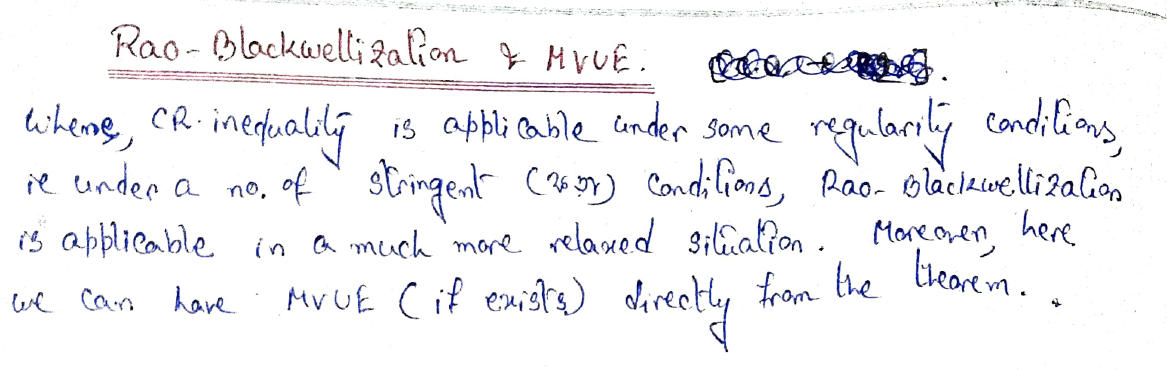 Rao-Blackwellization & MVUE.
Where, CR-inequality is applicable under some regularity conditions,
ie under a no. of stringent () conditions, Rao-Blackwellization
is applicable in a much more relaxed situation. Moreover, here
we can have MVUE (if exists) directly from the theorem.